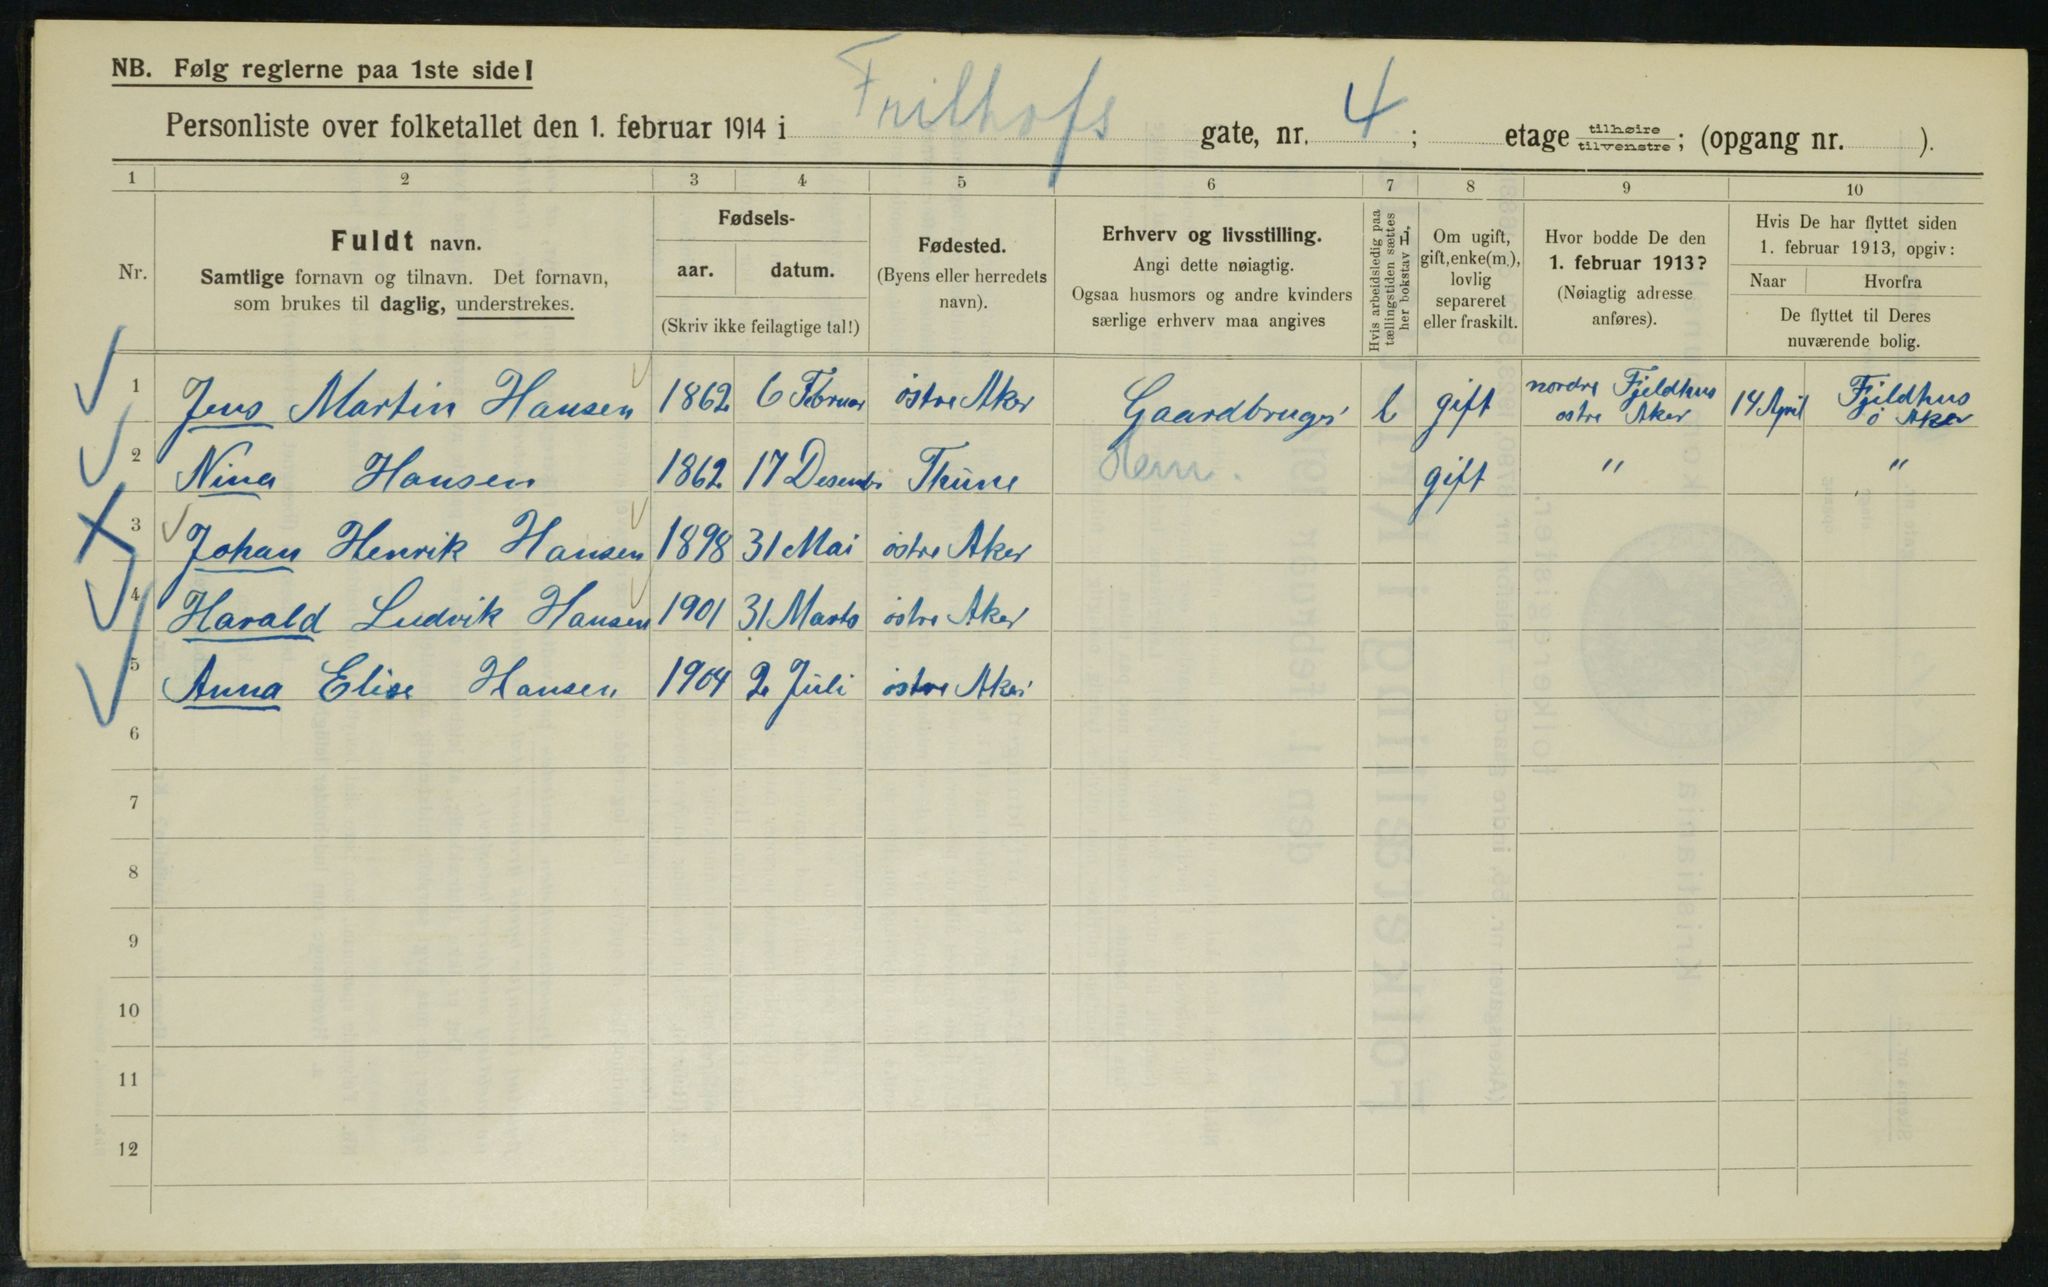 NB. Følg reglerne paa 1ste side!
Personliste over folketallet den 1. februar 1914 i Frithofs gate, nr. 4; etage tilhøire tilvenstre; (opgang nr. ).
1 2 3 4 5 6 7 8 9 10
Nr.
Fuldt navn.
Samtlige fornavn og tilnavn. Det fornavn,
som brukes til daglig, understrekes.
Fødsels-
aar. datum.
(Skriv ikke feilagtige tal!)
Fødested.
(Byens eller herredets
navn).
Erhverv og livsstilling.
Angi dette nøiagtig.
Ogsaa husmors og andre kvinders
særlige erhverv maa angives
Hvis arbeidsledig paa
tællingstiden sættes
her bokstav L.
Om ugift,
gift, enke(m.),
lovlig
separeret
eller fraskilt.
Hvor bodde De den
1. februar 1913?
(Nøiagtig adresse
anføres).
Hvis De har flyttet siden
1. februar 1913, opgiv:
Naar Hvorfra
De flyttet til Deres
nuværende bolig.
1 Jens Martin Hansen 1862 6 Februar østre Aker Gaardbruger l gift nordre Fjeldhus østre Aker 14 April Fjeldhus ø Aker
2 Nina Hansen 1862 17 Desembr Thune gift " "
3 Johan Henrik Hansen 1898 31 Mai østre Aker
4 Harald Ludvik Hansen 1901 31 Marts østre Aker
5 Anna Elise Hansen 1904 2 Juli østre Aker
6
7
8
9
10
11
12